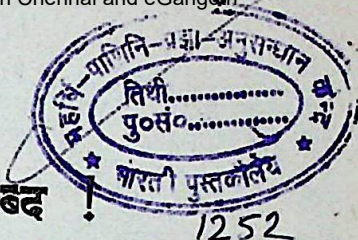 Chennai and eGangotri
महर्षि-पाणिनि-प्रज्ञा-अनुसन्धान
तिथी..................
पु०सं०..................
भारती पुस्तकालय
ब्द !
1252